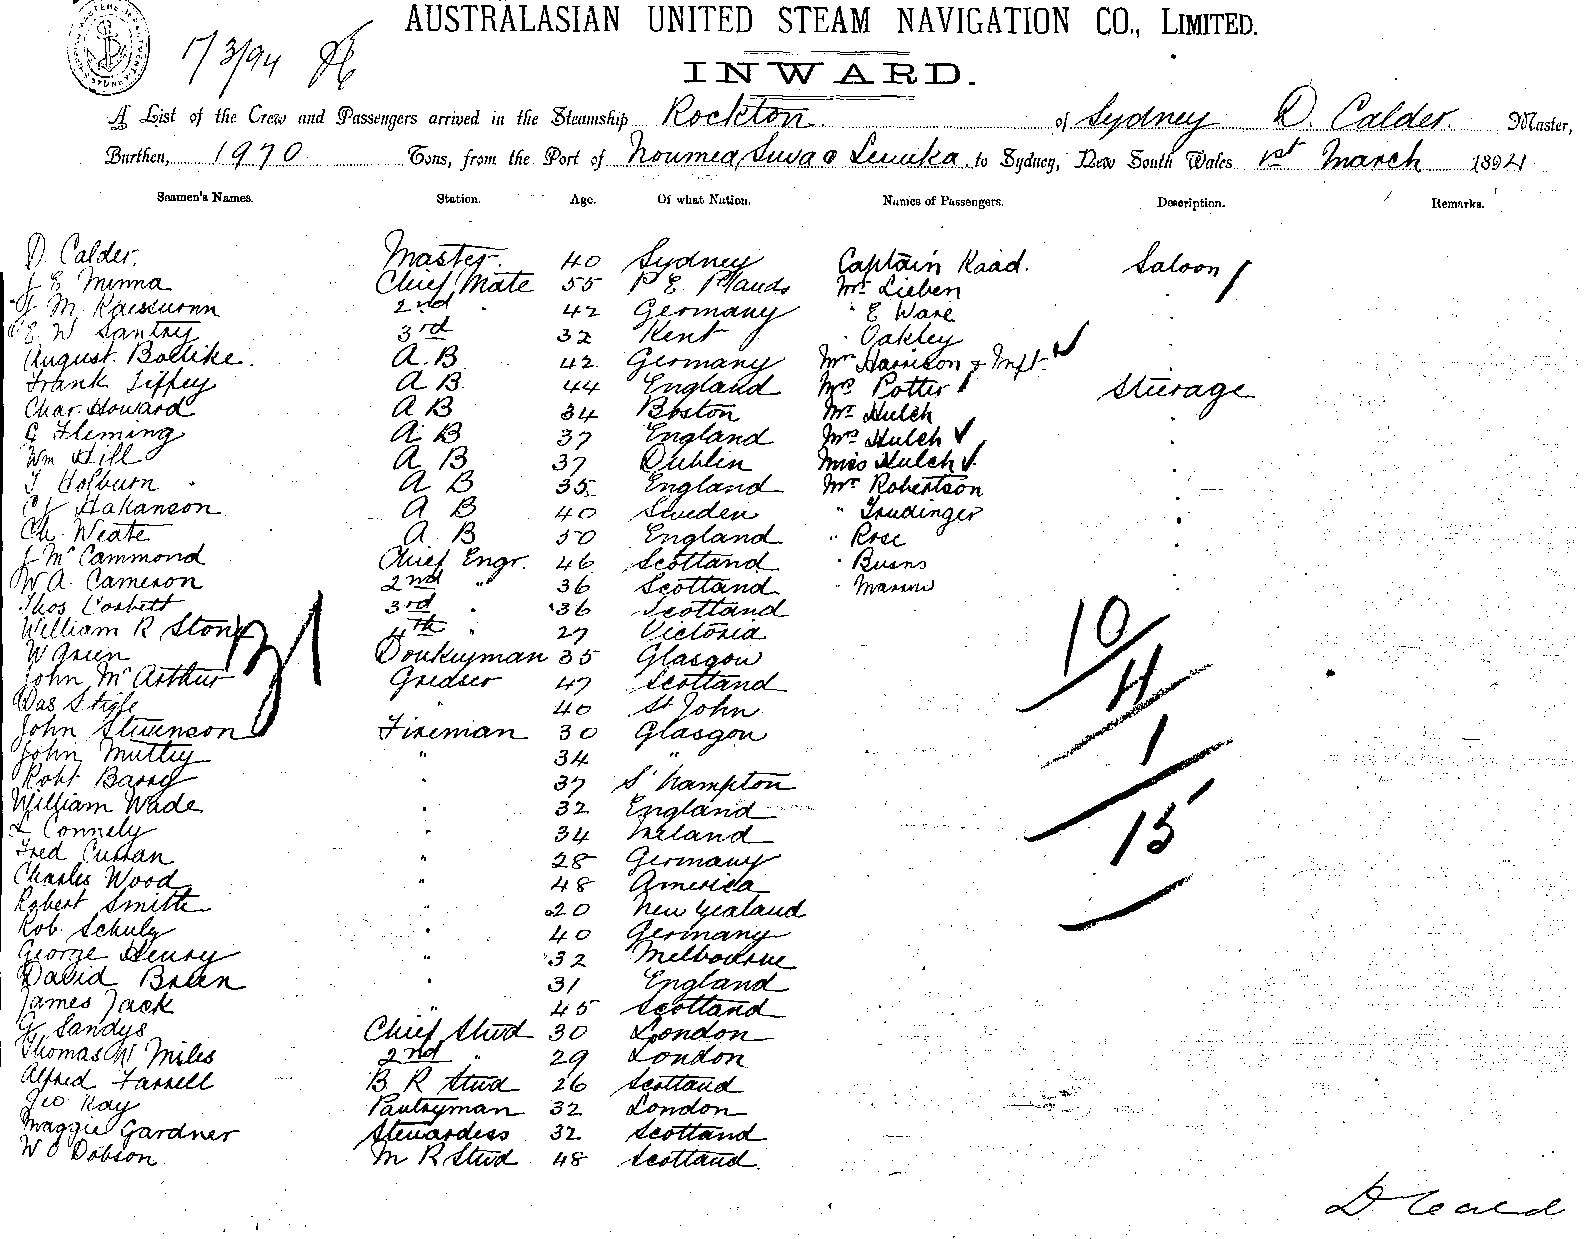 1/3/94
AUSTRALASIAN UNITED STEAM NAVIGATION CO., LIMITED.
INWARD.
A List of the Crew and Passengers arrived in the Steamship Rockton of Sydney D. Calder. Master,
Burthen, 1970 Tons, from the Port of Noumea, Suva & Levuka to Sydney, New South Wales 1st March 1894
Seamen's Names. Station. Age. Of what Nation. Names of Passengers. Description. Remarks.
D. Calder. Master. 40 Sydney Captain Raad. Saloon
J E Minna Chief Mate 55 P E Islands Mr Lieben
M. 2nd " 42 Germany " E Ware
E W Santry 3rd 32 Kent " Oakley
August. A.B 42 Germany Mrs Harrison & Inft.
Frank Tiffey A B. 44 England Mrs Potter Steerage
Char. Howard A B 34 Boston Mr Hulch
G Fleming A. B 37 England Mrs Hulch
Wm Hill A B 37 Dublin Miss Hulch
T Holburn A B 35 England Mr Robertson
Hakanson A B 40 Sweden " Trudinger
Ch. Weate A. B 50 England " Rose
J McCammond Chief Engr. 46 Scotland " Burns
W. A. Cameron 2nd " 36 Scotland "
Thos Corbett 3rd " 36 Scotland
William R Stone 4th " 27 Victoria
W Green Donkeyman 35 Glasgow
John McArthur Greaser 47 Scotland
" 40 St John
John Stevenson Fireman 30 Glasgow
John " 34 "
Robt Barry " 37 S'hampton
William Wade " 32 England
L Connely " 34 Ireland
Fred Curran " 28 Germany
Charles Wood " 48 America
Robert Smith " 20 New Zealand
Rob. Schulz " 40 Germany
George Henry " 32 Melbourne
David Breen " 31 England
James Jack " 45 Scotland
G Sandys Chief Stwd 30 London
Thomas W Miles 2nd " 29 London
Alfred Farrell B R Stwd 26 Scotland
Geo Kay Pantryman 32 London
Maggie Gardner Stewardess 32 Scotland
W O Dobson M R Stwd 48 Scotland.
10
4
1
15
D Cald